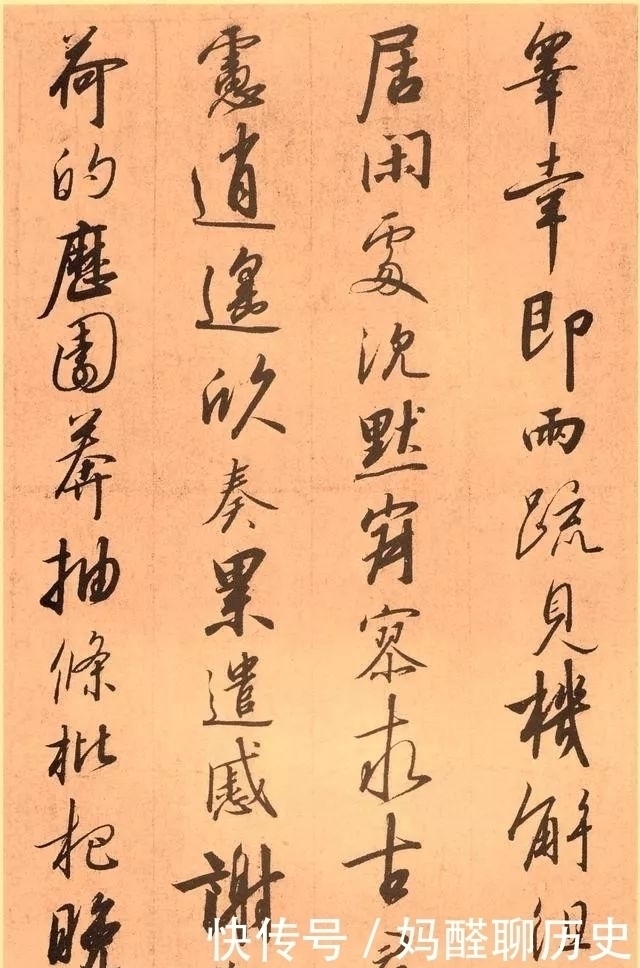 皋幸即兩疏見機解組
居閑處沉默寂寥求古
慮逍遙欣奏累遣慼謝
荷的歷園莽抽條枇杷晚
快传号 / 妈醛聊历史